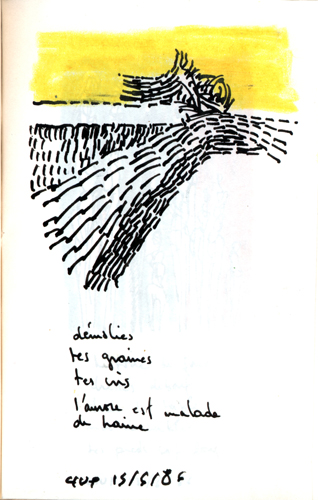 démolies
tes graines
tes cris
l'aurore est malade
de haine
15/5/86